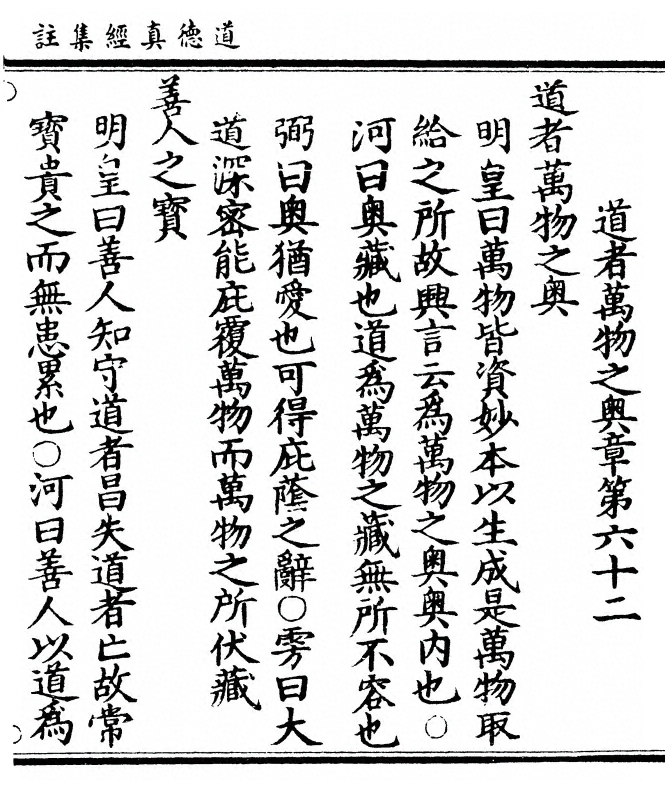 道德真經集註
道者萬物之奧章第六十二
道者萬物之奧
明皇曰萬物皆資妙本以生成是萬物取
給之所故興言云爲萬物之奧奧内也○
河曰奧藏也道爲萬物之藏無所不容也
弼曰奧猶愛也可得庇蔭之辭○雱曰大
道深密能庇覆萬物而萬物之所伏藏
善人之寳
明皇曰善人知守道者昌失道者亡故常
寳貴之而無患累也○河曰善人以道爲